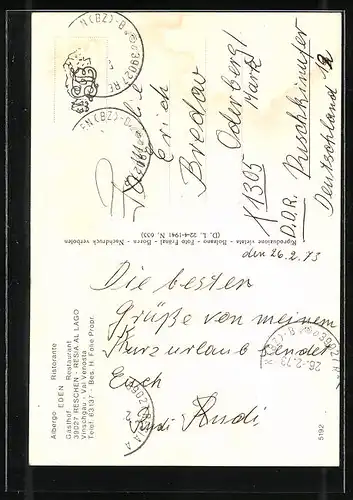 Albergo Ristorante
EDEN
Gasthof Restaurant
39027 RESCHEN - RESIA AL LAGO
Vinschgau - Val Venosta
Telef. 63137 - Bes. H. Folie Propr.
5192
Riproduzione vietata - Bolzano - Foto Fränzl - Bozen - Nachdruck verboten
(D. L. 22-4-1941 N. 633)
den 26.2.73
Die besten
Grüße von meinem
Kurzurlaub sendet
Euch
Rudi Rudi
Familie
Erich
Bredow
X1305 Oderberg/
Mark
D.D.R.
Deutschland
39027 RE
N (BZ) - B
26-2-73